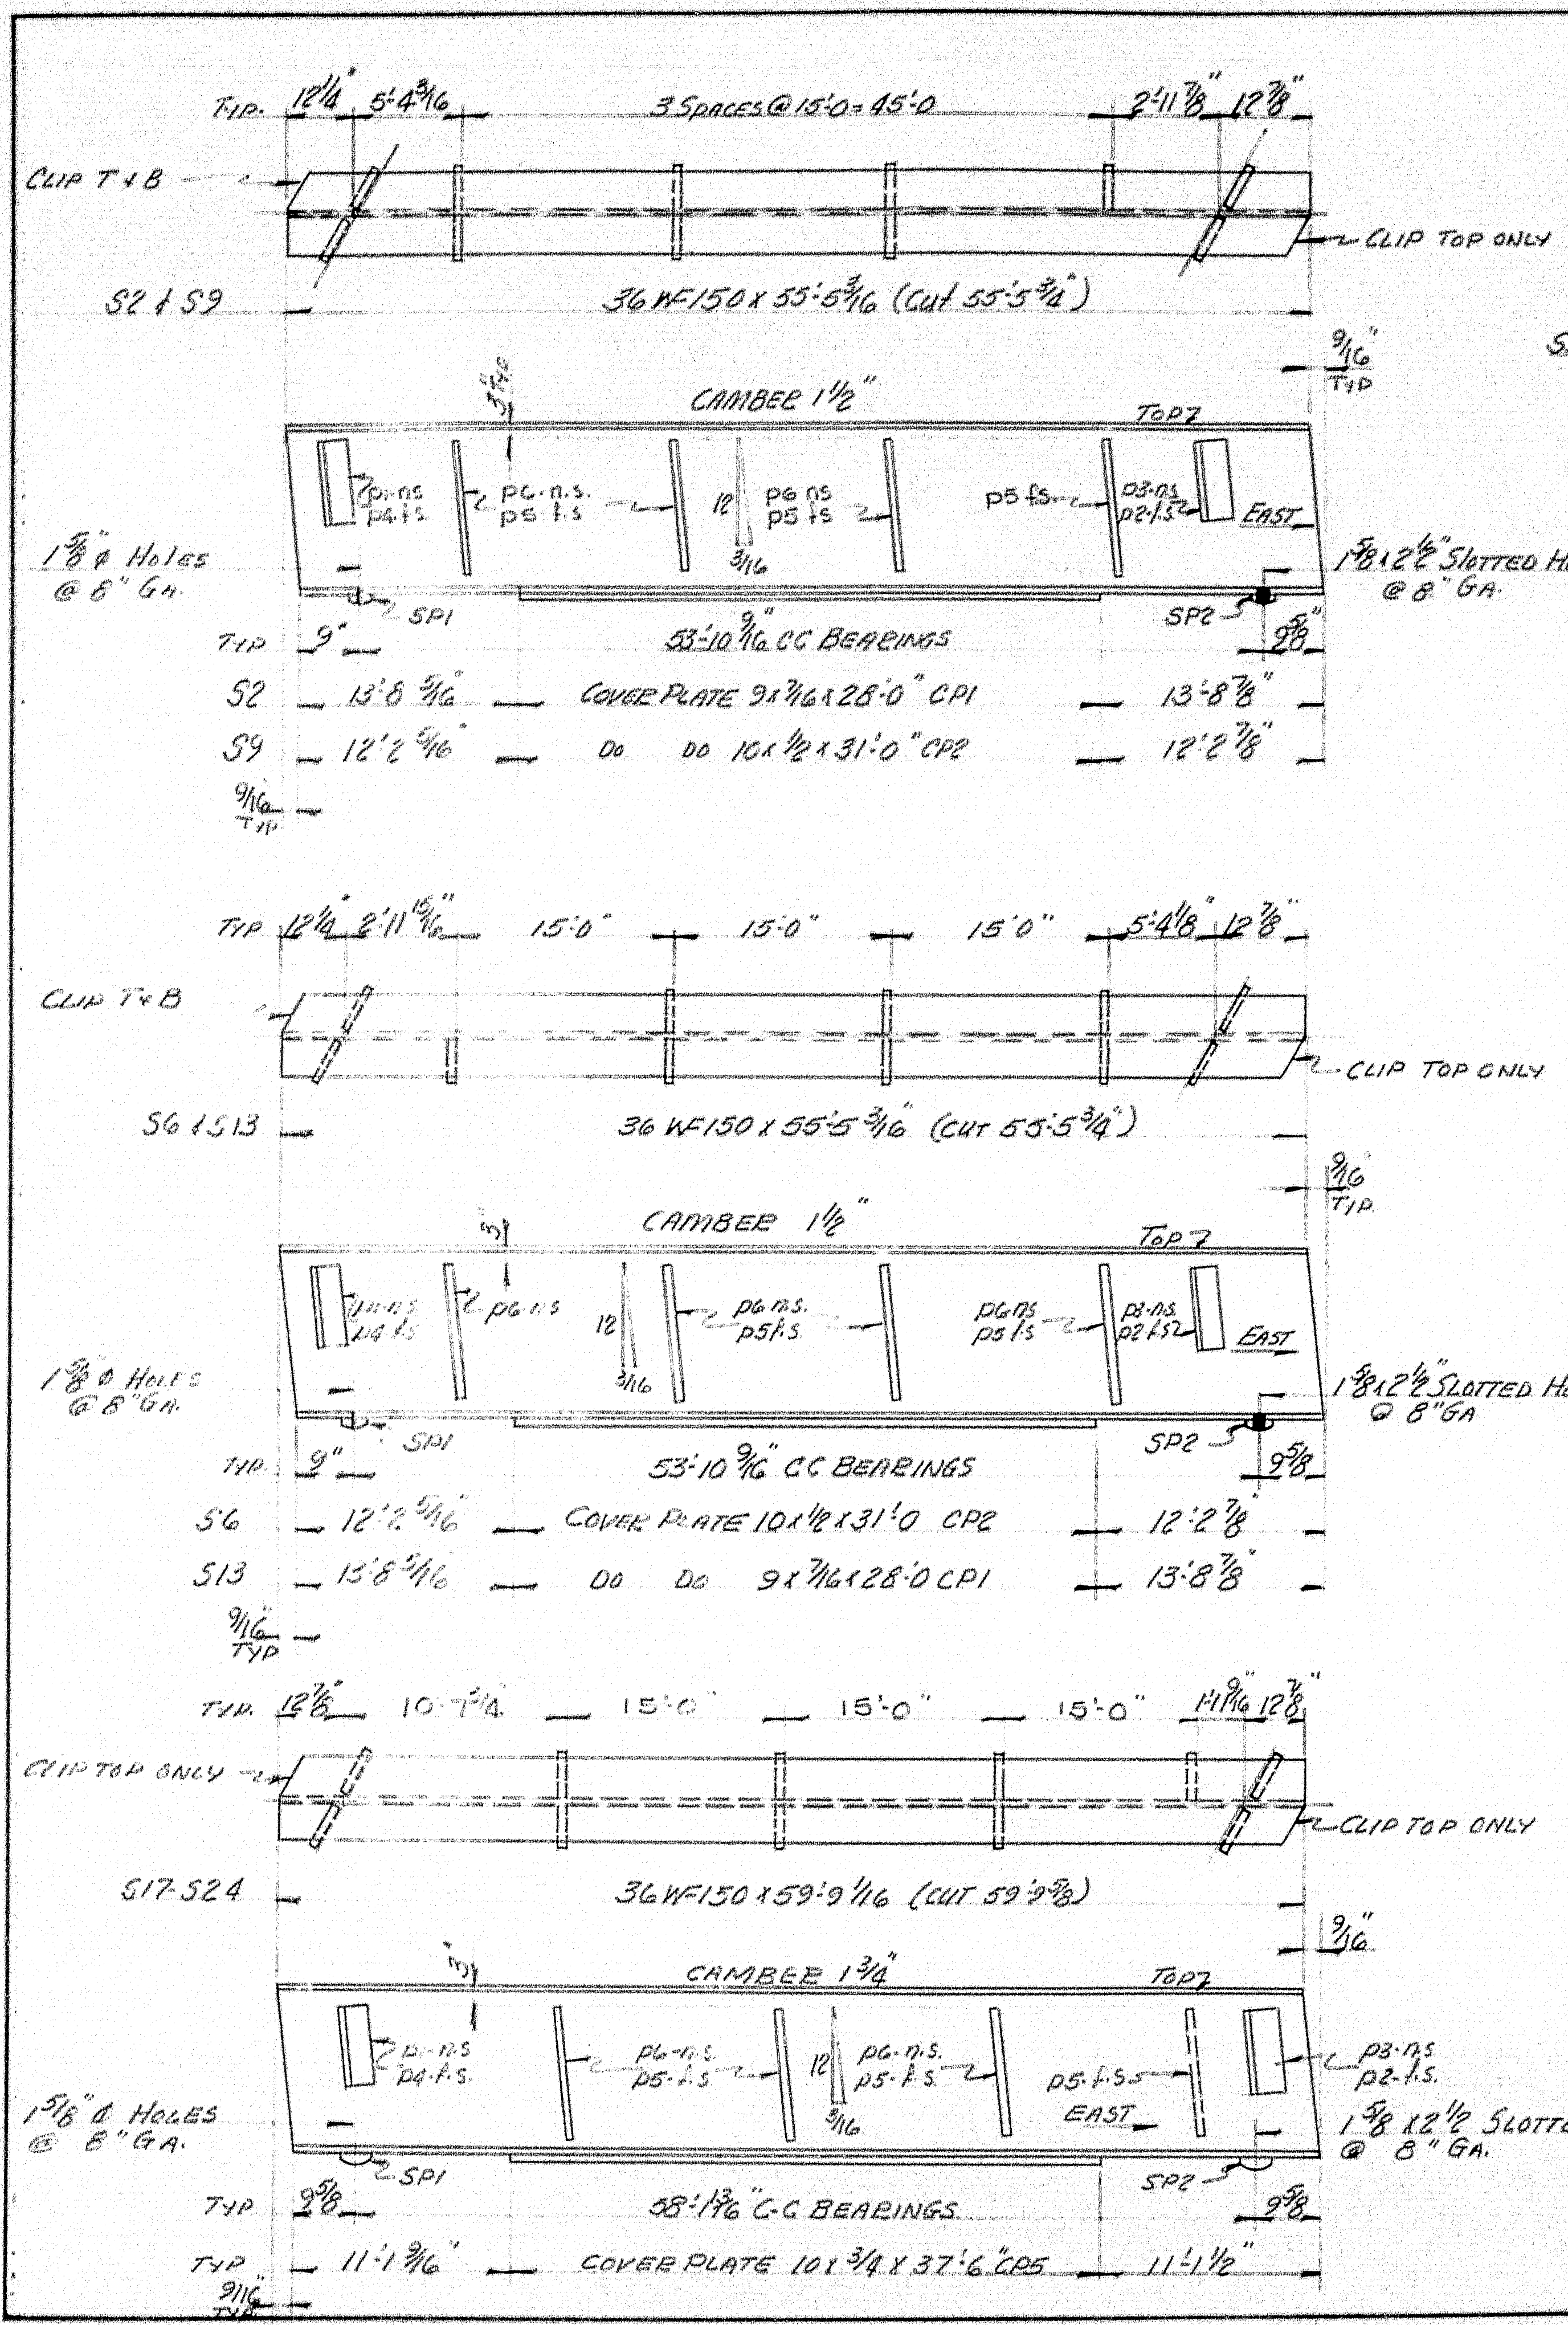 TYP. 12 1/4" 5'-4 3/16 3 SPACES @ 15'-0 = 45'-0 2'-11 7/8" 12 7/8"
CLIP T & B
CLIP TOP ONLY
S2 & S9 36 WF 150 X 55'-5 3/16 (CUT 55'-5 3/4")
9/16"
TYP
3" TYP
CAMBER 1 1/2"
TOP
p1-ns
p4-fs
p6-n.s.
p5-f.s
12
3/16
p6 ns
p5 fs
p5 fs
p3-ns
p2-f.s
EAST
1 5/8" φ HOLES
@ 8" GA.
1 5/8 x 2 1/2" SLOTTED H
@ 8" GA.
SP1
SP2
TYP 9" 53'-10 9/16" CC BEARINGS 9 5/8"
S2 13'-8 5/16" COVER PLATE 9 x 7/16 x 28'-0" CP1 13'-8 7/8"
S9 12'-2 5/16" DO DO 10 x 1/2 x 31'-0" CP2 12'-2 7/8"
9/16
TYP
TYP 12 1/4" 2'-11 15/16" 15'-0" 15'-0" 15'-0" 5'-4 1/8" 12 7/8"
CLIP T & B
CLIP TOP ONLY
S6 & S13 36 WF 150 X 55'-5 3/16" (CUT 55'-5 3/4")
9/16"
TYP.
3"
CAMBER 1 1/2"
TOP
p4 fs
p6 ns
12
3/16
p6 n.s.
p5 f.s.
p6 ns
p5 f.s
p3-n.s.
p2 f.s
EAST
1 5/8" φ HOLES
@ 8" GA.
1 5/8 x 2 1/2" SLOTTED H
@ 8" GA
SP1
SP2
TYP. 9" 53'-10 9/16" CC BEARINGS 9 5/8
S6 12'-2 5/16" COVER PLATE 10 x 1/2 x 31'-0 CP2 12'-2 7/8"
S13 13'-8 5/16 DO DO 9 x 7/16 x 28'-0 CP1 13'-8 7/8"
9/16"
TYP
TYP. 12 7/8" 10'-7 1/4" 15'-0" 15'-0" 15'-0" 1'-11 9/16" 12 7/8"
CLIP TOP ONLY
CLIP TOP ONLY
S17-S24 36 WF 150 X 59'-9 1/16 (CUT 59'-9 5/8)
9/16"
3"
CAMBER 1 3/4"
TOP
p1-n.s
p4-f.s.
p6-n.s.
p5-f.s
12
3/16
p6-n.s.
p5-f.s.
p5-f.s
EAST
p3-n.s.
p2-f.s.
1 5/8" φ HOLES
@ 8" GA.
1 5/8 x 2 1/2 SLOTT
@ 8" GA.
SP1
SP2
TYP 9 5/8 58'-1 13/16" C-C BEARINGS 9 5/8
TYP 11'-1 9/16" COVER PLATE 10 x 3/4 x 37'-6" CP5 11'-1 1/2"
9/16"
TYP